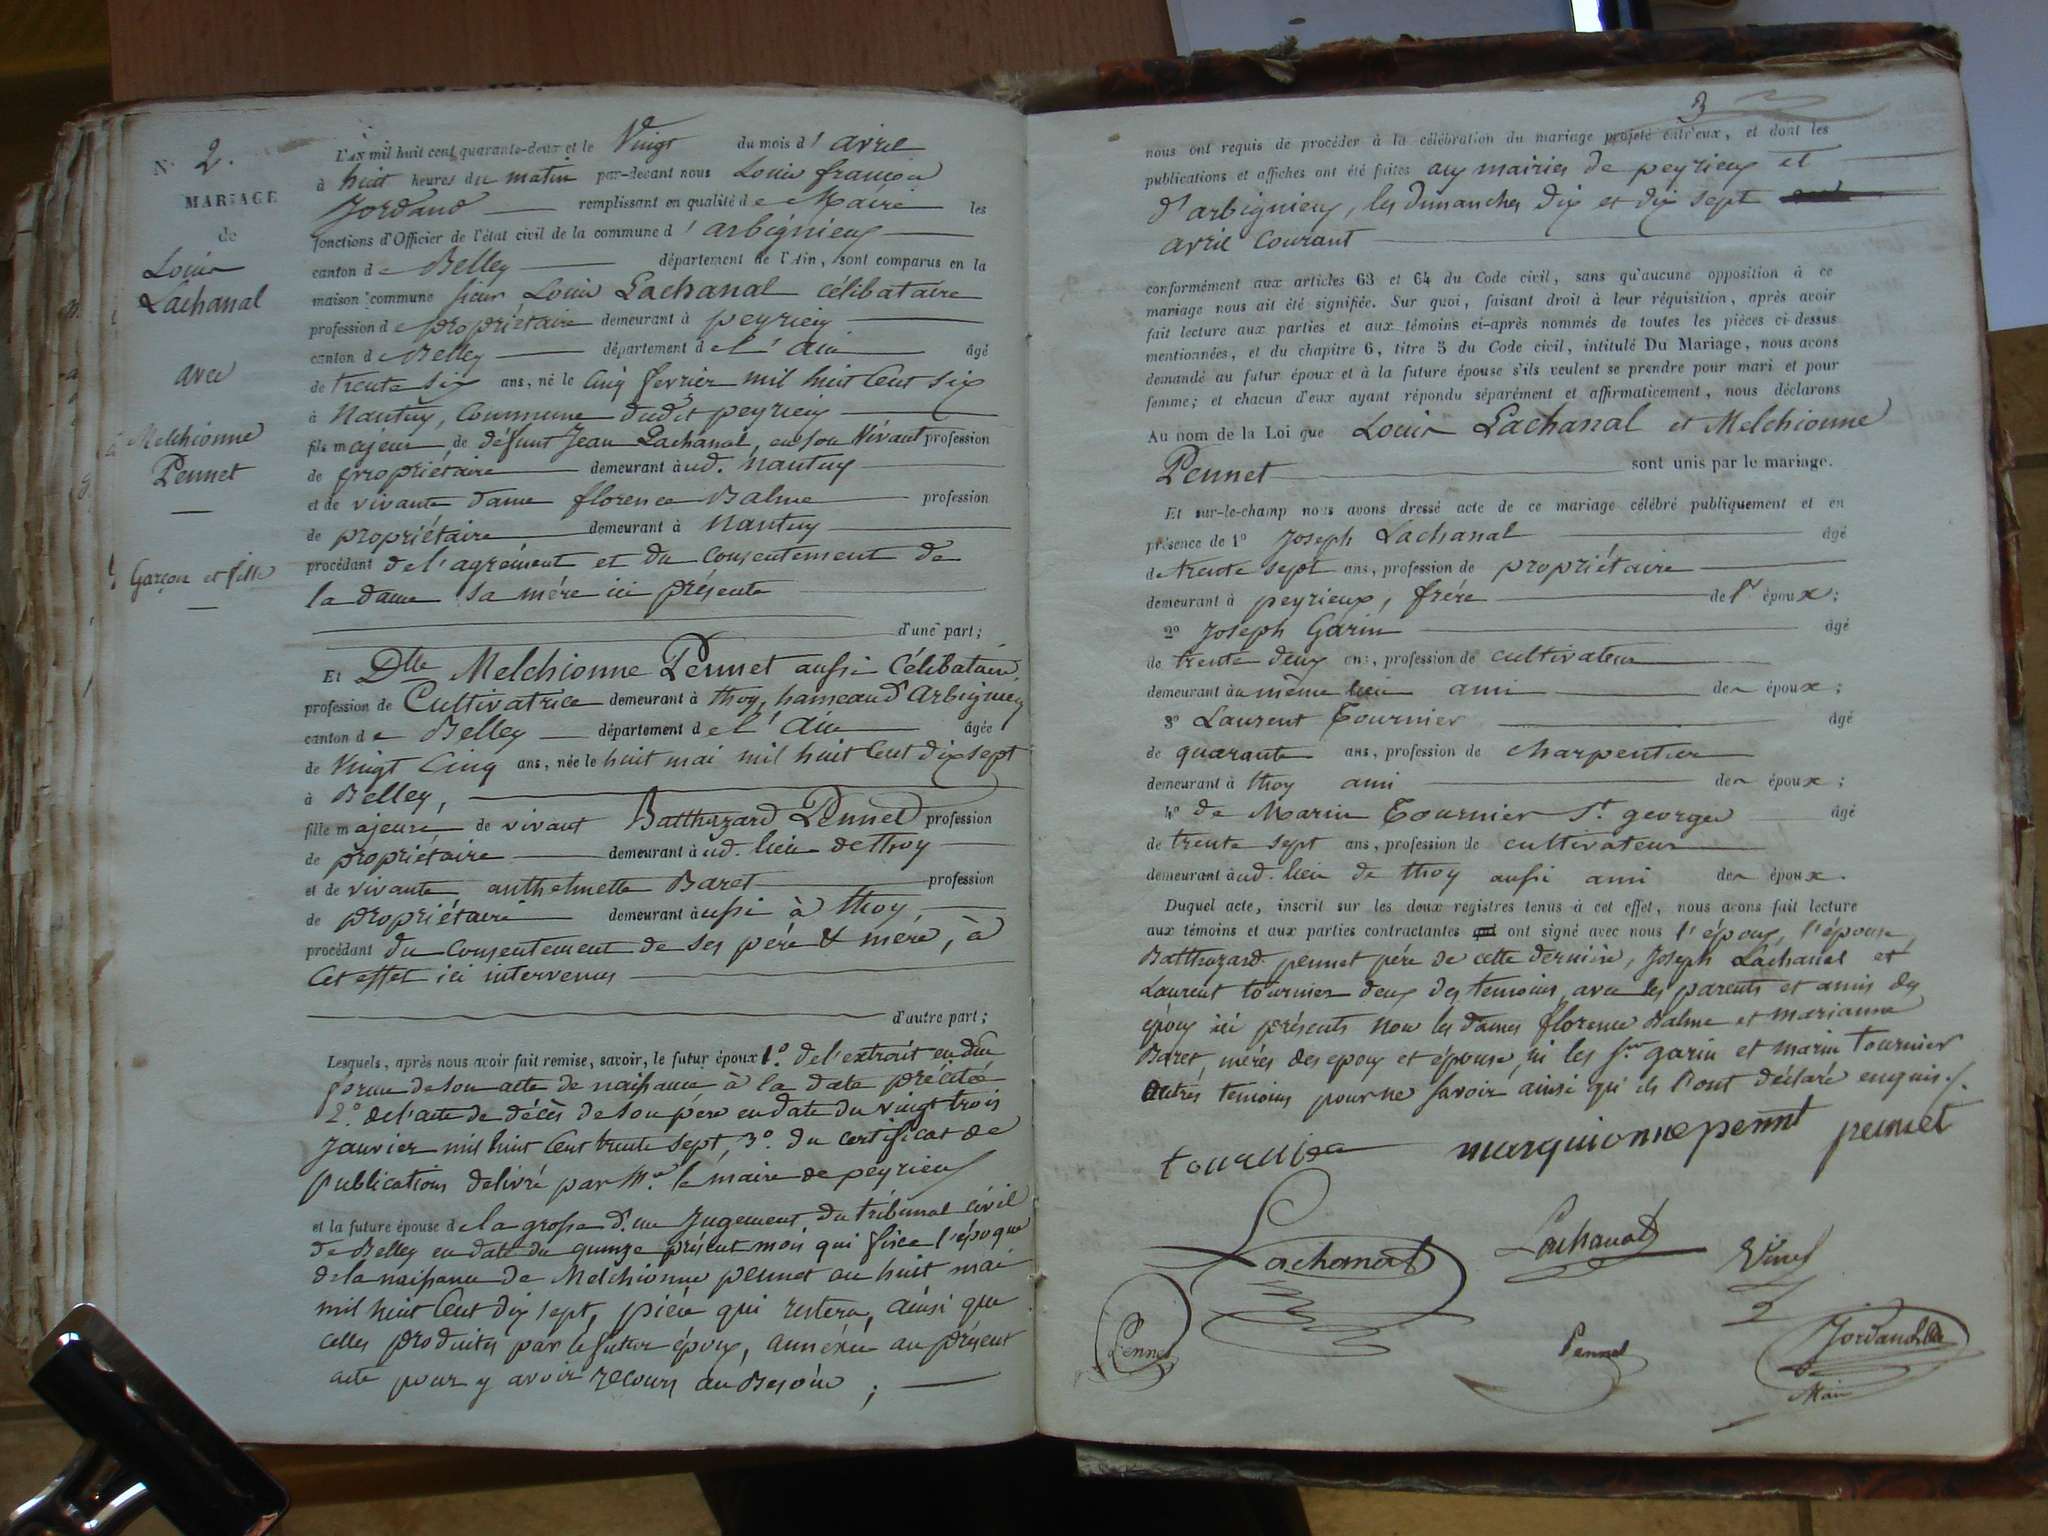 N° 2.
MARIAGE
de
Louis
Lachanal
avec
Melchionne
Pennet
Garçon et fille
L'AN mil huit cent quarante-deux et le Vingt du mois d' avril
à huit heures du matin par-devant nous Louis françois
Jordand remplissant en qualité de Maire les
fonctions d'Officier de l'état civil de la commune d' arbignieux
canton de Belley département de l'Ain, sont comparus en la
maison commune sieur Louis Lachanal célibataire
profession de propriétaire demeurant à peyrieux
canton de Belley département de l'ain âgé
de trente six ans, né le cinq fevrier mil huit Cent six
à Nantuy, Commune dudit peyrieux
fils majeur de défunt Jean Lachanal, en son Vivant profession
de propriétaire demeurant à ud. Nantuy
et de vivante dame florence Balme profession
de propriétaire demeurant à Nantuy
procédant de l'agrément et du Consentement de
la dame sa mére ici présente
d'une part;
Et Dlle Melchionne Pennet aussi Célibataire,
profession de Cultivatrice demeurant à thoy, hameau d'Arbignieux
canton de Belley département de l'Ain âgée
de Vingt Cinq ans, née le huit mai mil huit Cent dix sept
à Belley,
fille majeure de vivant Balthazard Pennet profession
de propriétaire demeurant à ud. lieu de thoy
et de vivante anthelmette Baret profession
de propriétaire demeurant aussi à thoy,
procédant du Consentement de ses pére & mére, à
Cet effet ici intervenus
d'autre part;
Lesquels, après nous avoir fait remise, savoir, le futur époux 1.° de l'extrait en due
forme de son acte de naissance à la date précitée
2.° de l'acte de décès de son père en date du vingt trois
Janvier mil huit Cent trente sept, 3.° du certificat de
publications délivré par Mr. le maire de peyrieux
et la future épouse de la grosse d'un Jugement du tribunal civil
de Belley en date du quinze présent mois qui fixe l'époque
de la naissance de Melchionne pennet au huit mai
mil huit Cent dix sept, piéce qui restera, ainsi que
celles produites par le futur époux, annéxée au présent
acte pour y avoir recours au Besoin;
3
nous ont requis de procéder à la célébration du mariage projeté entr'eux, et dont les
publications et affiches ont été faites aux mairies de peyrieux et
d'arbignieux, les dimanches dix et dix sept
avril courant
conformément aux articles 63 et 64 du Code civil, sans qu'aucune opposition à ce
mariage nous ait été signifiée. Sur quoi, faisant droit à leur réquisition, après avoir
fait lecture aux parties et aux témoins ci-après nommés de toutes les pièces ci-dessus
mentionnées, et du chapitre 6, titre 5 du Code civil, intitulé Du Mariage, nous avons
demandé au futur époux et à la future épouse s'ils veulent se prendre pour mari et pour
femme; et chacun d'eux ayant répondu séparément et affirmativement, nous déclarons
Au nom de la Loi que Louis Lachanal et Melchionne
Pennet sont unis par le mariage.
Et sur-le-champ nous avons dressé acte de ce mariage célébré publiquement et en
présence de 1° Joseph Lachanal âgé
de trente sept ans, profession de propriétaire
demeurant à peyrieux, frére de l' époux;
2° Joseph Garin âgé
de trente deux ans, profession de cultivateur
demeurant au même lieu ami des époux;
3° Laurent Tournier âgé
de quarante ans, profession de charpentier
demeurant à thoy ami des époux;
4° de Marin Tournier St. george âgé
de trente sept ans, profession de cultivateur
demeurant à ud. lieu de thoy aussi ami des époux.
Duquel acte, inscrit sur les deux registres tenus à cet effet, nous avons fait lecture
aux témoins et aux parties contractantes qui ont signé avec nous l'époux, l'épouse
Balthazard pennet pére de cette derniére, Joseph Lachanal et
Laurent tournier deux des temoins avec les parents et amis des
époux ici présents non les dames florence Balme et marianne
Baret, méres des epoux et épouse, ni les srs garin et marin tournier
autres temoins pour ne savoir ainsi qu'ils l'ont déclaré enquis.
tournier marquionne pennet pennet
Lachanal Lachanal
Pennet Pennet Jordand
Maire